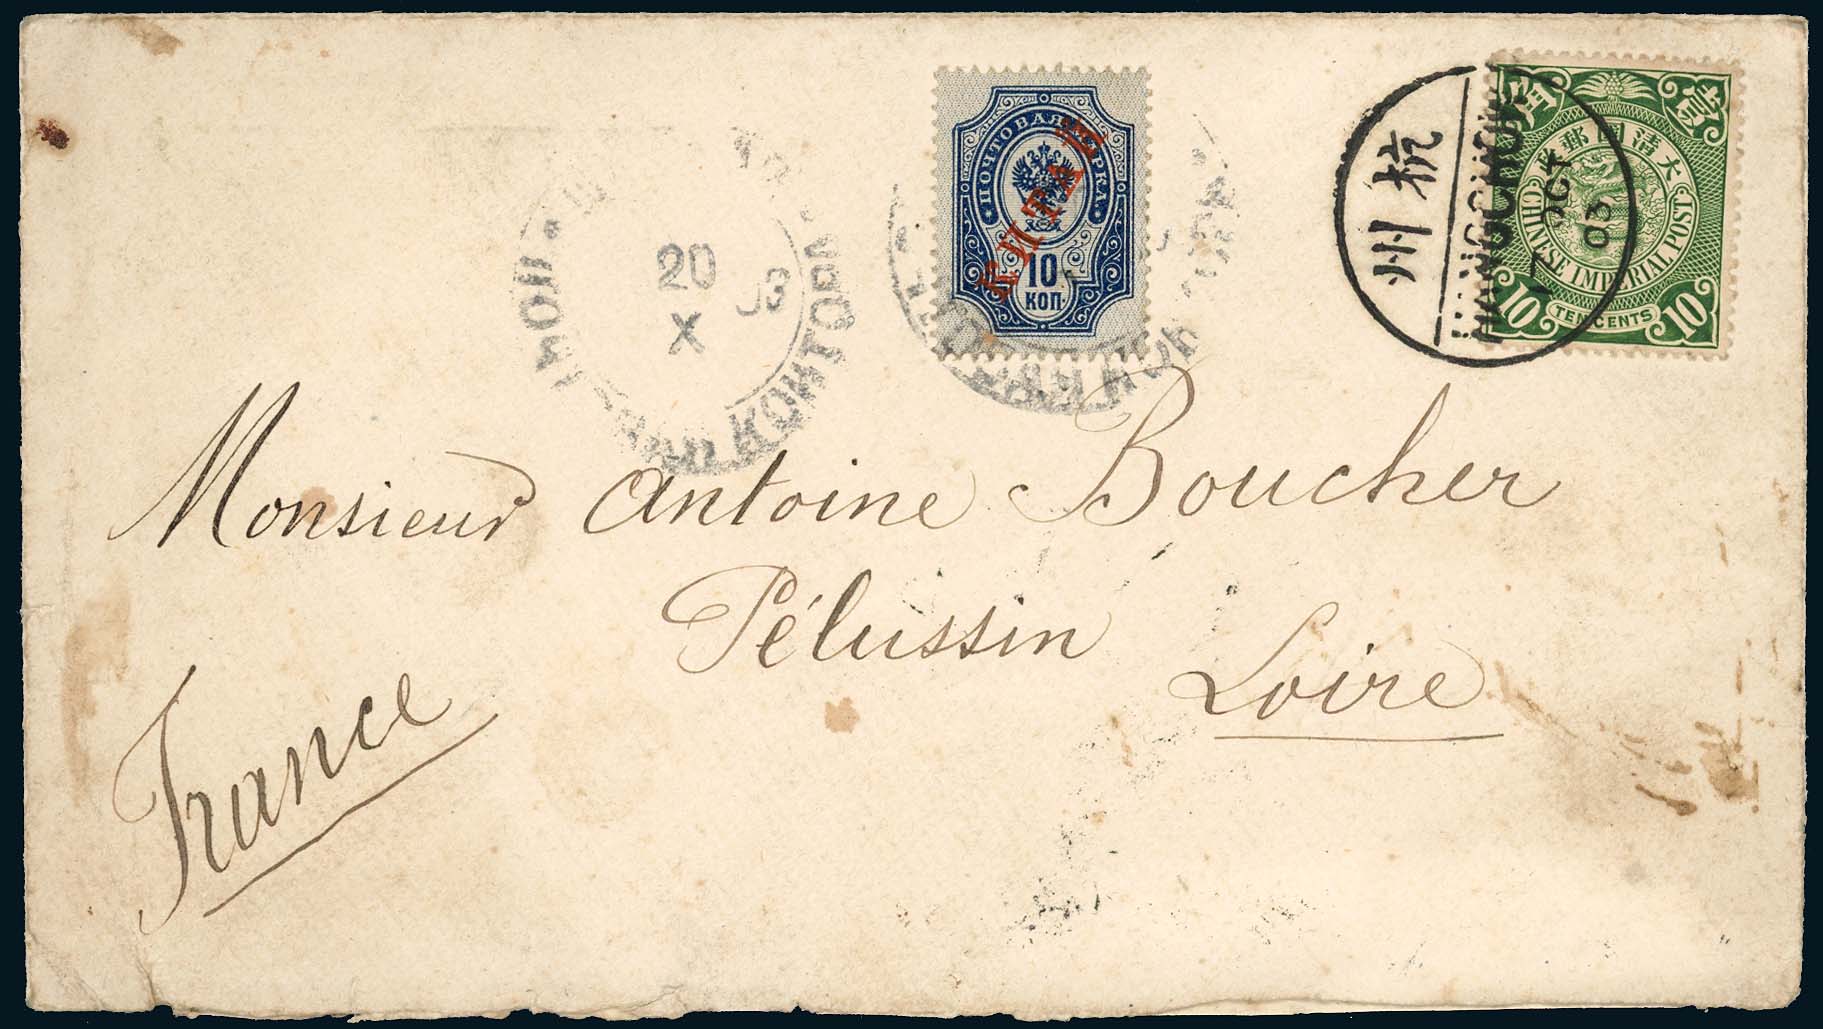 ПОЧТОВАЯ МАРКА.
КИТАЙ
10
КОП.
大清國郵政
CHINESE IMPERIAL POST
10 TEN CENTS 10
杭州
HANGCHOW
17 OCT
03
20
X
03
КОНТОРА
Monsieur Antoine Boucher
Pélussin
Loire
France